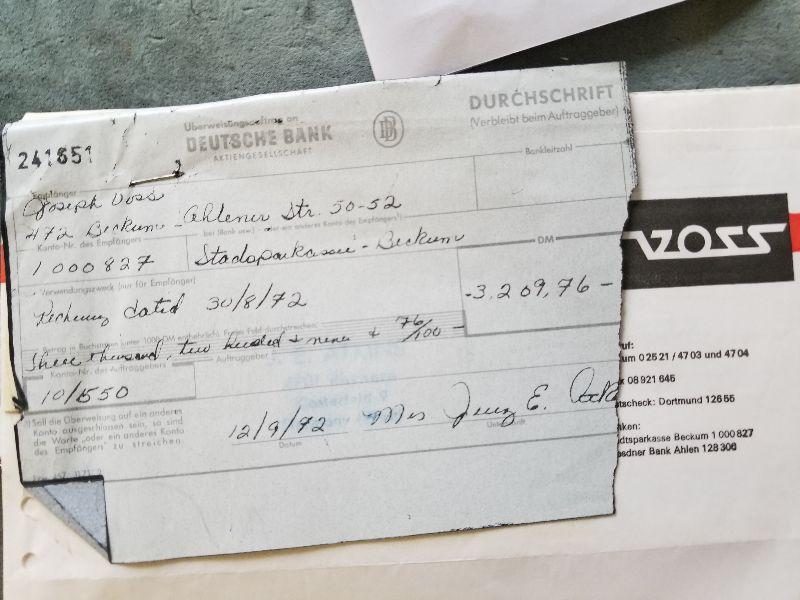 241551
Überweisungsauftrag an
DEUTSCHE BANK
AKTIENGESELLSCHAFT
DURCHSCHRIFT
(Verbleibt beim Auftraggeber)
Bankleitzahl
Empfänger
Joseph Voss
472 Beckum - Ahlener Str. 50-52
Konto-Nr. des Empfängers
bei (Bank usw.) - oder ein anderes Konto des Empfängers¹)
1 000 827 Stadsparkasse - Beckum
Verwendungszweck (nur für Empfänger)
DM
Rechnung dated 30/8/72
-3,209,76-
Betrag in Buchstaben (unter 1000 DM entbehrlich). Freies Feld durchstreichen.
three thousand, two hundred & nine & 76/100 -
Konto-Nr. des Auftraggebers
Auftraggeber
10/1550
¹) Soll die Überweisung auf ein anderes
Konto ausgeschlossen sein, so sind
die Worte „oder ein anderes Konto
des Empfängers" zu streichen.
12/9/72 Mrs E.
Datum
Unterschrift
VOSS
um 0 25 21 / 47 03 und 47 04
08 921 645
tscheck: Dortmund 126 55
ken:
dtsparkasse Beckum 1 000 827
esdner Bank Ahlen 128 306